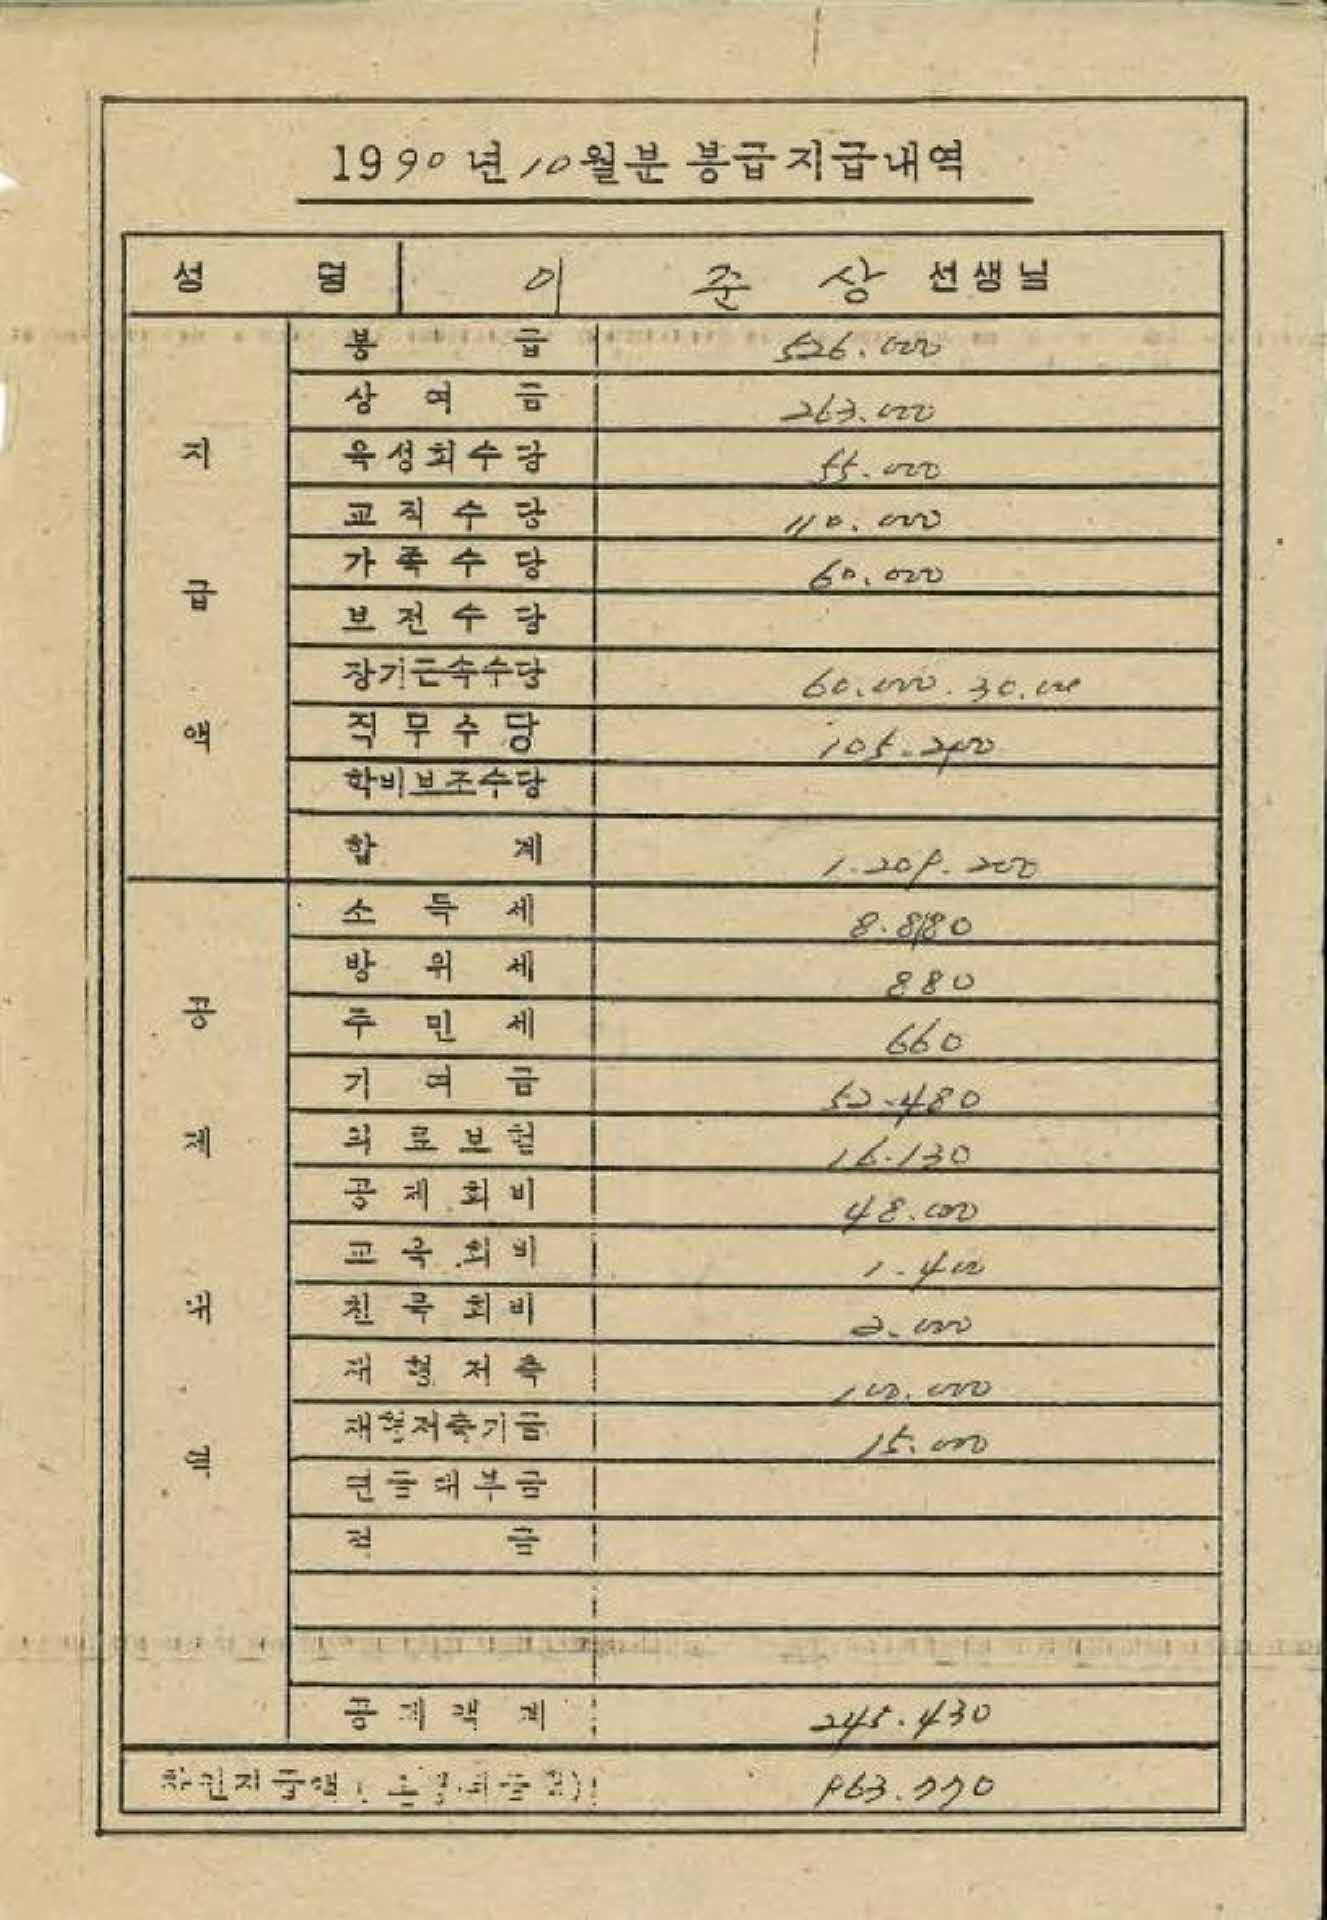 1990년 10월분 봉급지급내역
성 명 이 준 상 선생님
지급액
봉 급 526.000
상 여 금 263.000
육성회수당 55.000
교직수당 110.000
가족수당 60.000
보전수당
장기근속수당 60.000. 30.000
직무수당 105.200
학비보조수당
합 계 1.209.200
공제내역
소 득 세 8.880
방 위 세 880
주 민 세 660
기 여 금 52.480
의료보험 16.130
공제회비 48.000
교육회비 1.400
친목회비 2.000
재형저축 100.000
재형저축기금 15.000
연금대부금
적 금
공제액계 245.430
차인지급액 963.770